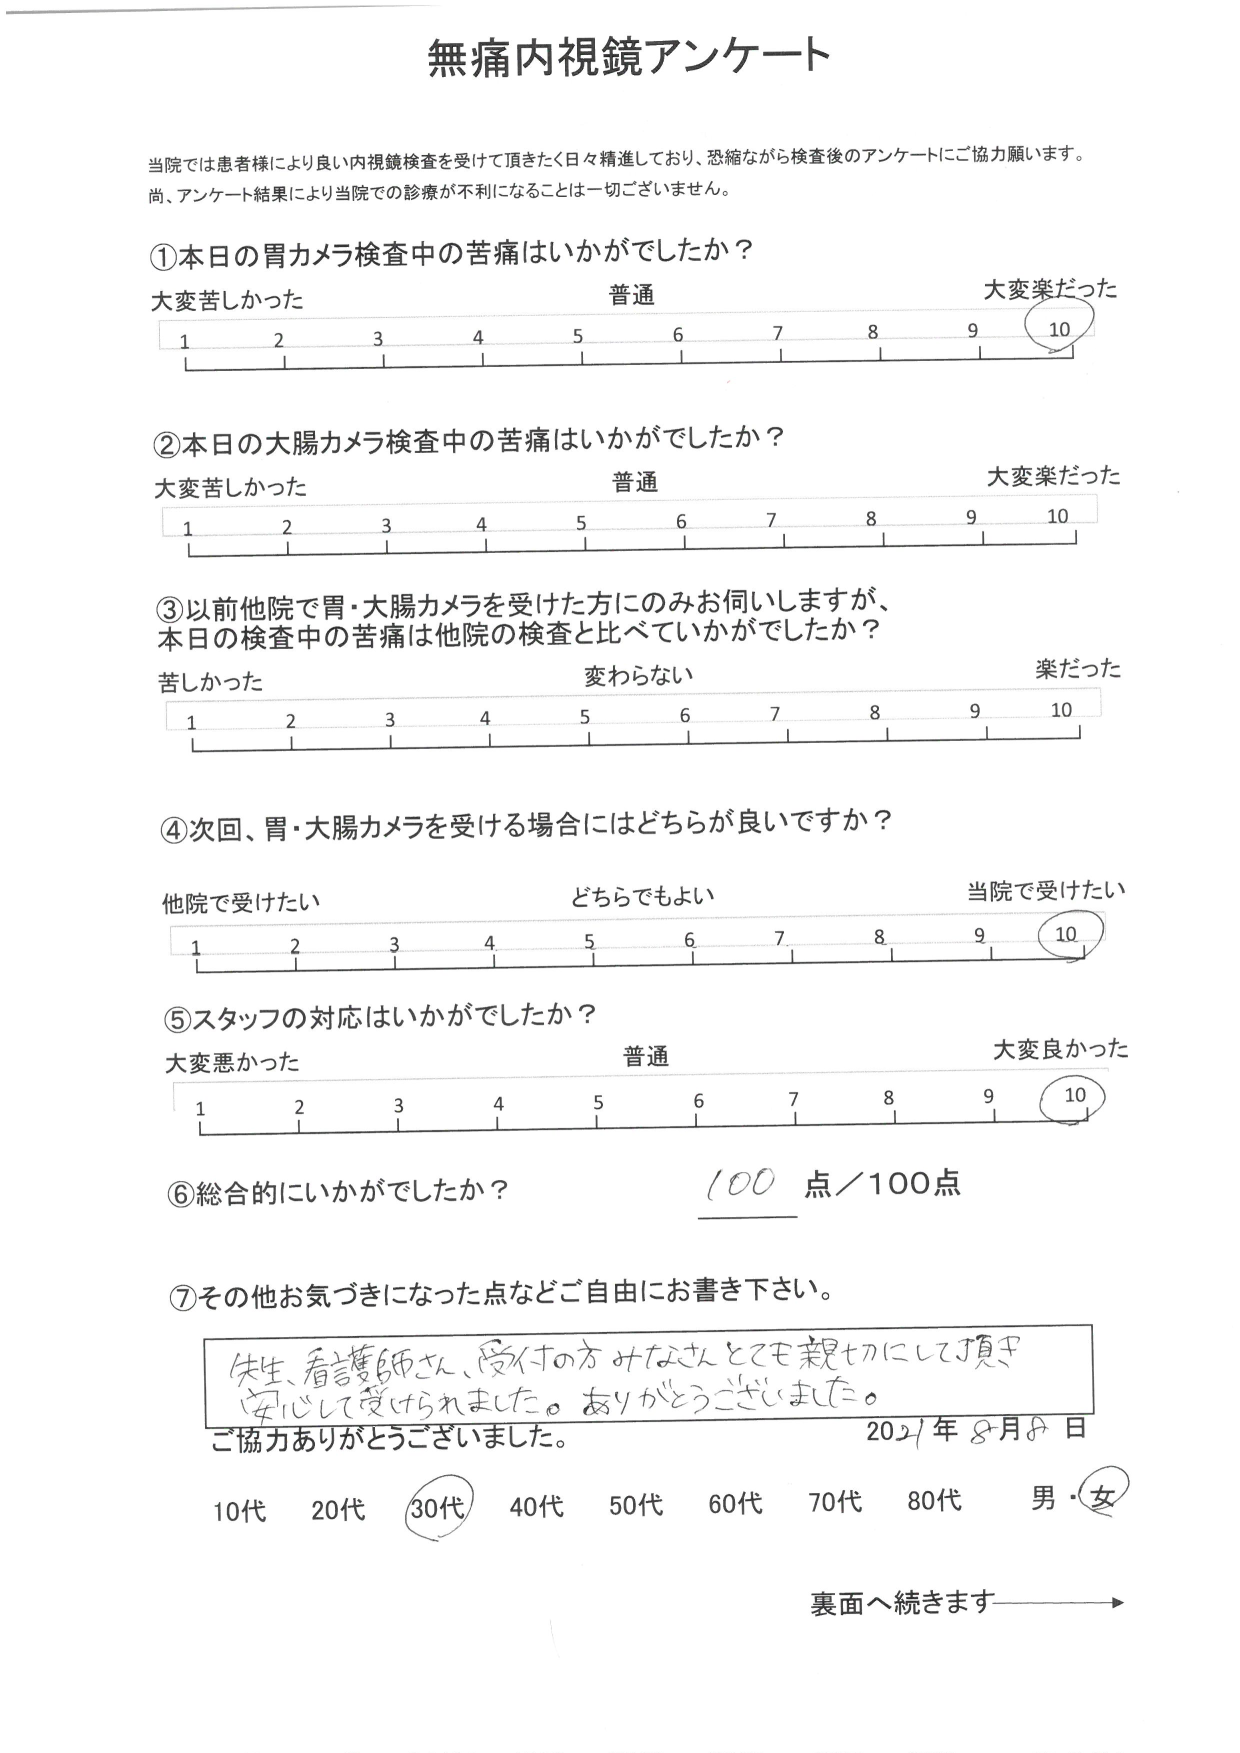 無痛内視鏡アンケート
当院では患者様により良い内視鏡検査を受けて頂きたく日々精進しており、恐縮ながら検査後のアンケートにご協力願います。
尚、アンケート結果により当院での診療が不利になることは一切ございません。
①本日の胃カメラ検査中の苦痛はいかがでしたか？
大変苦しかった 普通 大変楽だった
1 2 3 4 5 6 7 8 9 10
②本日の大腸カメラ検査中の苦痛はいかがでしたか？
大変苦しかった 普通 大変楽だった
1 2 3 4 5 6 7 8 9 10
③以前他院で胃・大腸カメラを受けた方にのみお伺いしますが、
本日の検査中の苦痛は他院の検査と比べていかがでしたか？
苦しかった 変わらない 楽だった
1 2 3 4 5 6 7 8 9 10
④次回、胃・大腸カメラを受ける場合にはどちらが良いですか？
他院で受けたい どちらでもよい 当院で受けたい
1 2 3 4 5 6 7 8 9 10
⑤スタッフの対応はいかがでしたか？
大変悪かった 普通 大変良かった
1 2 3 4 5 6 7 8 9 10
⑥総合的にいかがでしたか？ 100 点／100点
⑦その他お気づきになった点などご自由にお書き下さい。
先生、看護師さん、受付の方みなさんとても親切にして頂き
安心して受けられました。ありがとうございました。
ご協力ありがとうございました。 2021年 8月8日
10代 20代 30代 40代 50代 60代 70代 80代 男・女
裏面へ続きます